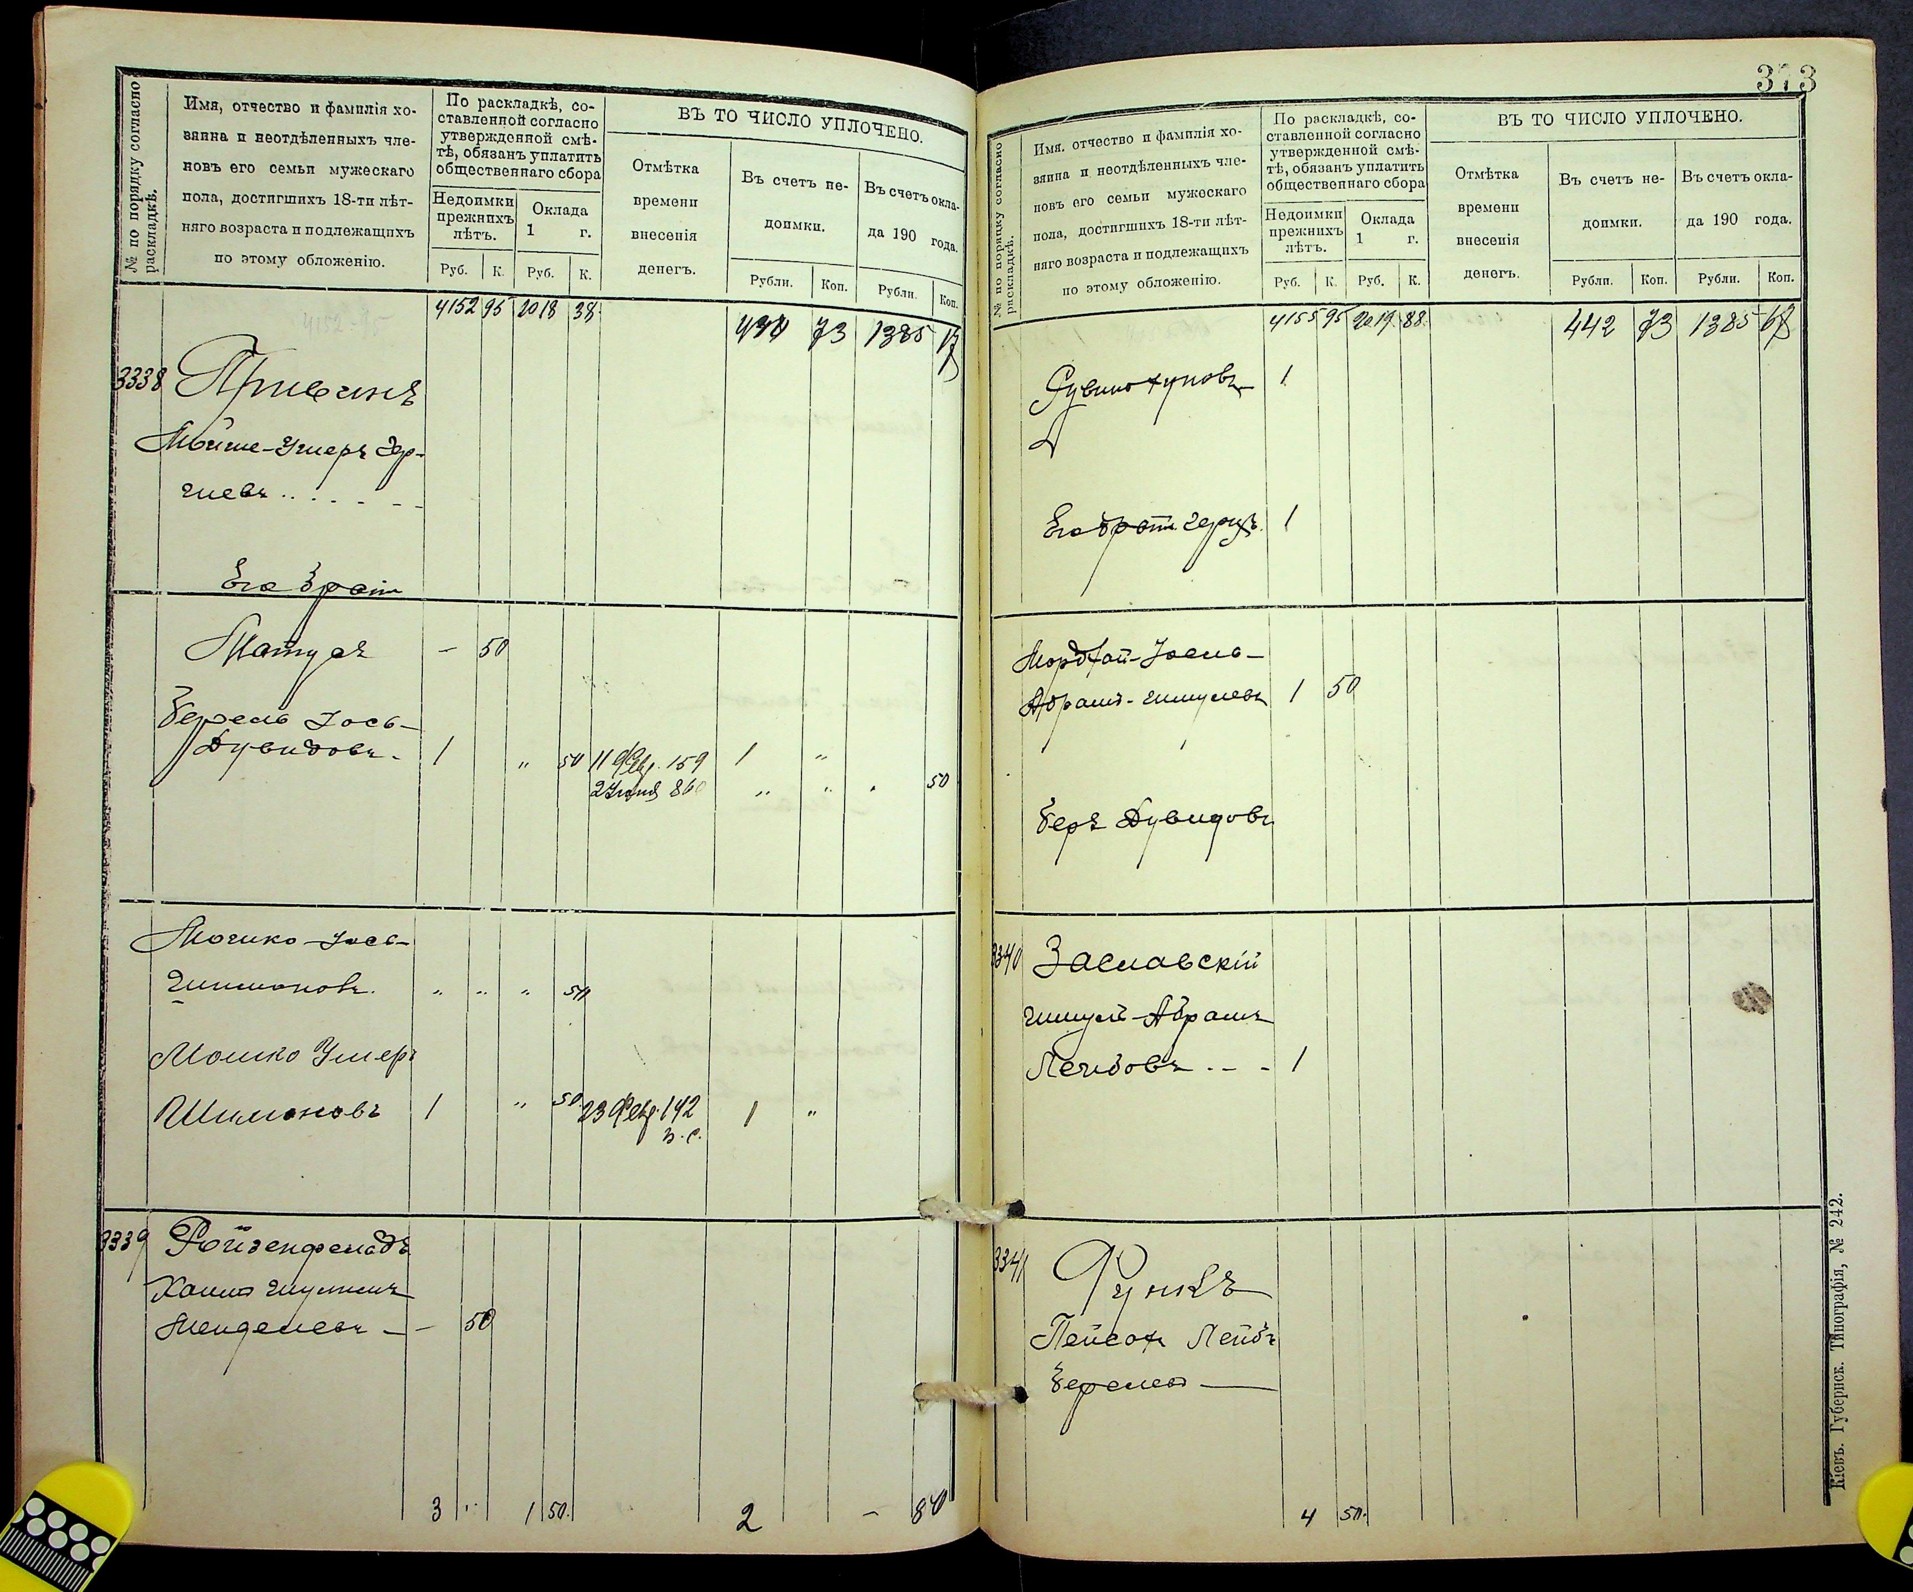 № по порядку согласно раскладкѣ.
Имя, отчество и фамилія хо-
зяина и неотдѣленныхъ чле-
новъ его семьи мужескаго
пола, достигшихъ 18-ти лѣт-
няго возраста и подлежащихъ
по этому обложенію.
По раскладкѣ, со-
ставленной согласно
утвержденной смѣ-
тѣ, обязанъ уплатить
общественнаго сбора
Недоимки прежнихъ лѣтъ.
Оклада 1 г.
Руб. К. Руб. К.
ВЪ ТО ЧИСЛО УПЛОЧЕНО.
Отмѣтка
времени
внесенія
денегъ.
Въ счетъ не-
доимки.
Въ счетъ окла-
да 190 года.
Рубли. Коп. Рубли. Коп.
4152 95 2018 38 73 1385
3338 Привинъ
Мойше-Умеръ Гер-
шевъ
Его братъ
Матусъ — 50
Берель Іось-
Дувидовъ. 1 " 50 11 Февр. 159 1 "
2 Іюня 860 " " " 50
Мошко-Іось-
Шимоновъ. " " " 50
Мошко Умеръ
Шимоновъ 1 " 50 23 Февр. 142 1 "
3339 Ройзенфельдъ
Хаимъ Шулимъ
Менделевъ — — 50
3 " 1 50. 2 —
373
№ по порядку согласно раскладкѣ.
Имя, отчество и фамилія хо-
зяина и неотдѣленныхъ чле-
новъ его семьи мужескаго
пола, достигшихъ 18-ти лѣт-
няго возраста и подлежащихъ
по этому обложенію.
По раскладкѣ, со-
ставленной согласно
утвержденной смѣ-
тѣ, обязанъ уплатить
общественнаго сбора
Недоимки прежнихъ лѣтъ.
Оклада 1 г.
Руб. К. Руб. К.
ВЪ ТО ЧИСЛО УПЛОЧЕНО.
Отмѣтка
времени
внесенія
денегъ.
Въ счетъ не-
доимки.
Въ счетъ окла-
да 190 года.
Рубли. Коп. Рубли. Коп.
4155 95 2019 88 442 73 1385 67
1
Его братъ Герцъ. 1
Мордхай-Іосль-
Абрамъ-Шмулевъ 1 50
Беръ Дувидовъ
3340 Заславскій
Шмуль-Абрамъ
Лейбовъ - - - 1
3341 Функъ
Пейсах Лейбъ
Берелевъ —
4 50.
Кіевъ. Губернск. Типографія, № 242.